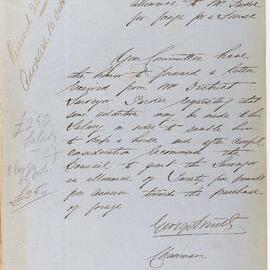 allowance to Mr Pardoe
for forage for a horse
Your Committee have
the honor to forward a letter
received from Mr District
Surveyor Pardoe requesting that
some addition may be made to his
Salary in order to enable him
to keep a horse and after careful
consideration recommend the
Council to grant the Surveyor
an allowance of Twenty five pounds
per annum towards the purchase
of forage
George Smith
Chairman
£250
Salary